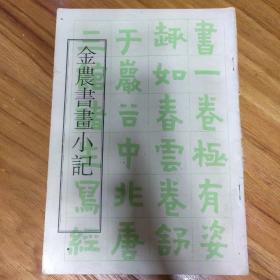 金農書畫小記
書一卷極有姿
趣如春雲卷舒
于巖谷中非唐
寫經